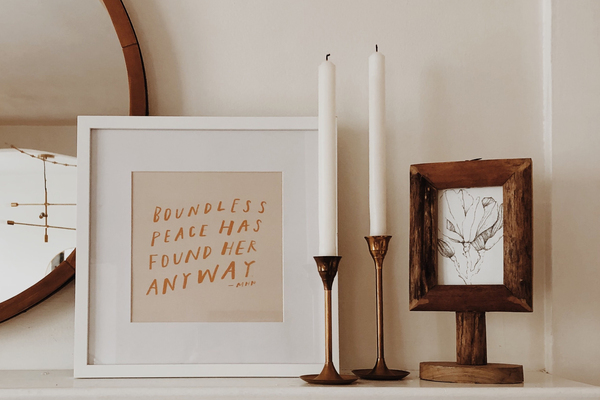 BOUNDLESS
PEACE HAS
FOUND HER
ANYWAY